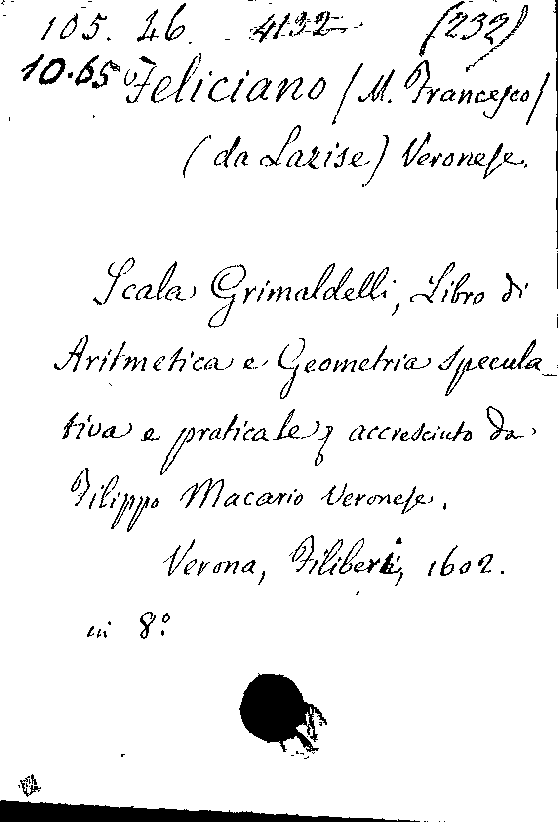 105. 26. 4132 (232)
10.65 Feliciano / M. Francesco /
(da Lazise) Veronese.
Scala Grimaldelli, Libro di
Aritmetica e Geometria specula_
tiva e praticale, accresciuto da
Filippo Macario Veronese.
Verona, Filiberi, 1602.
in 8º